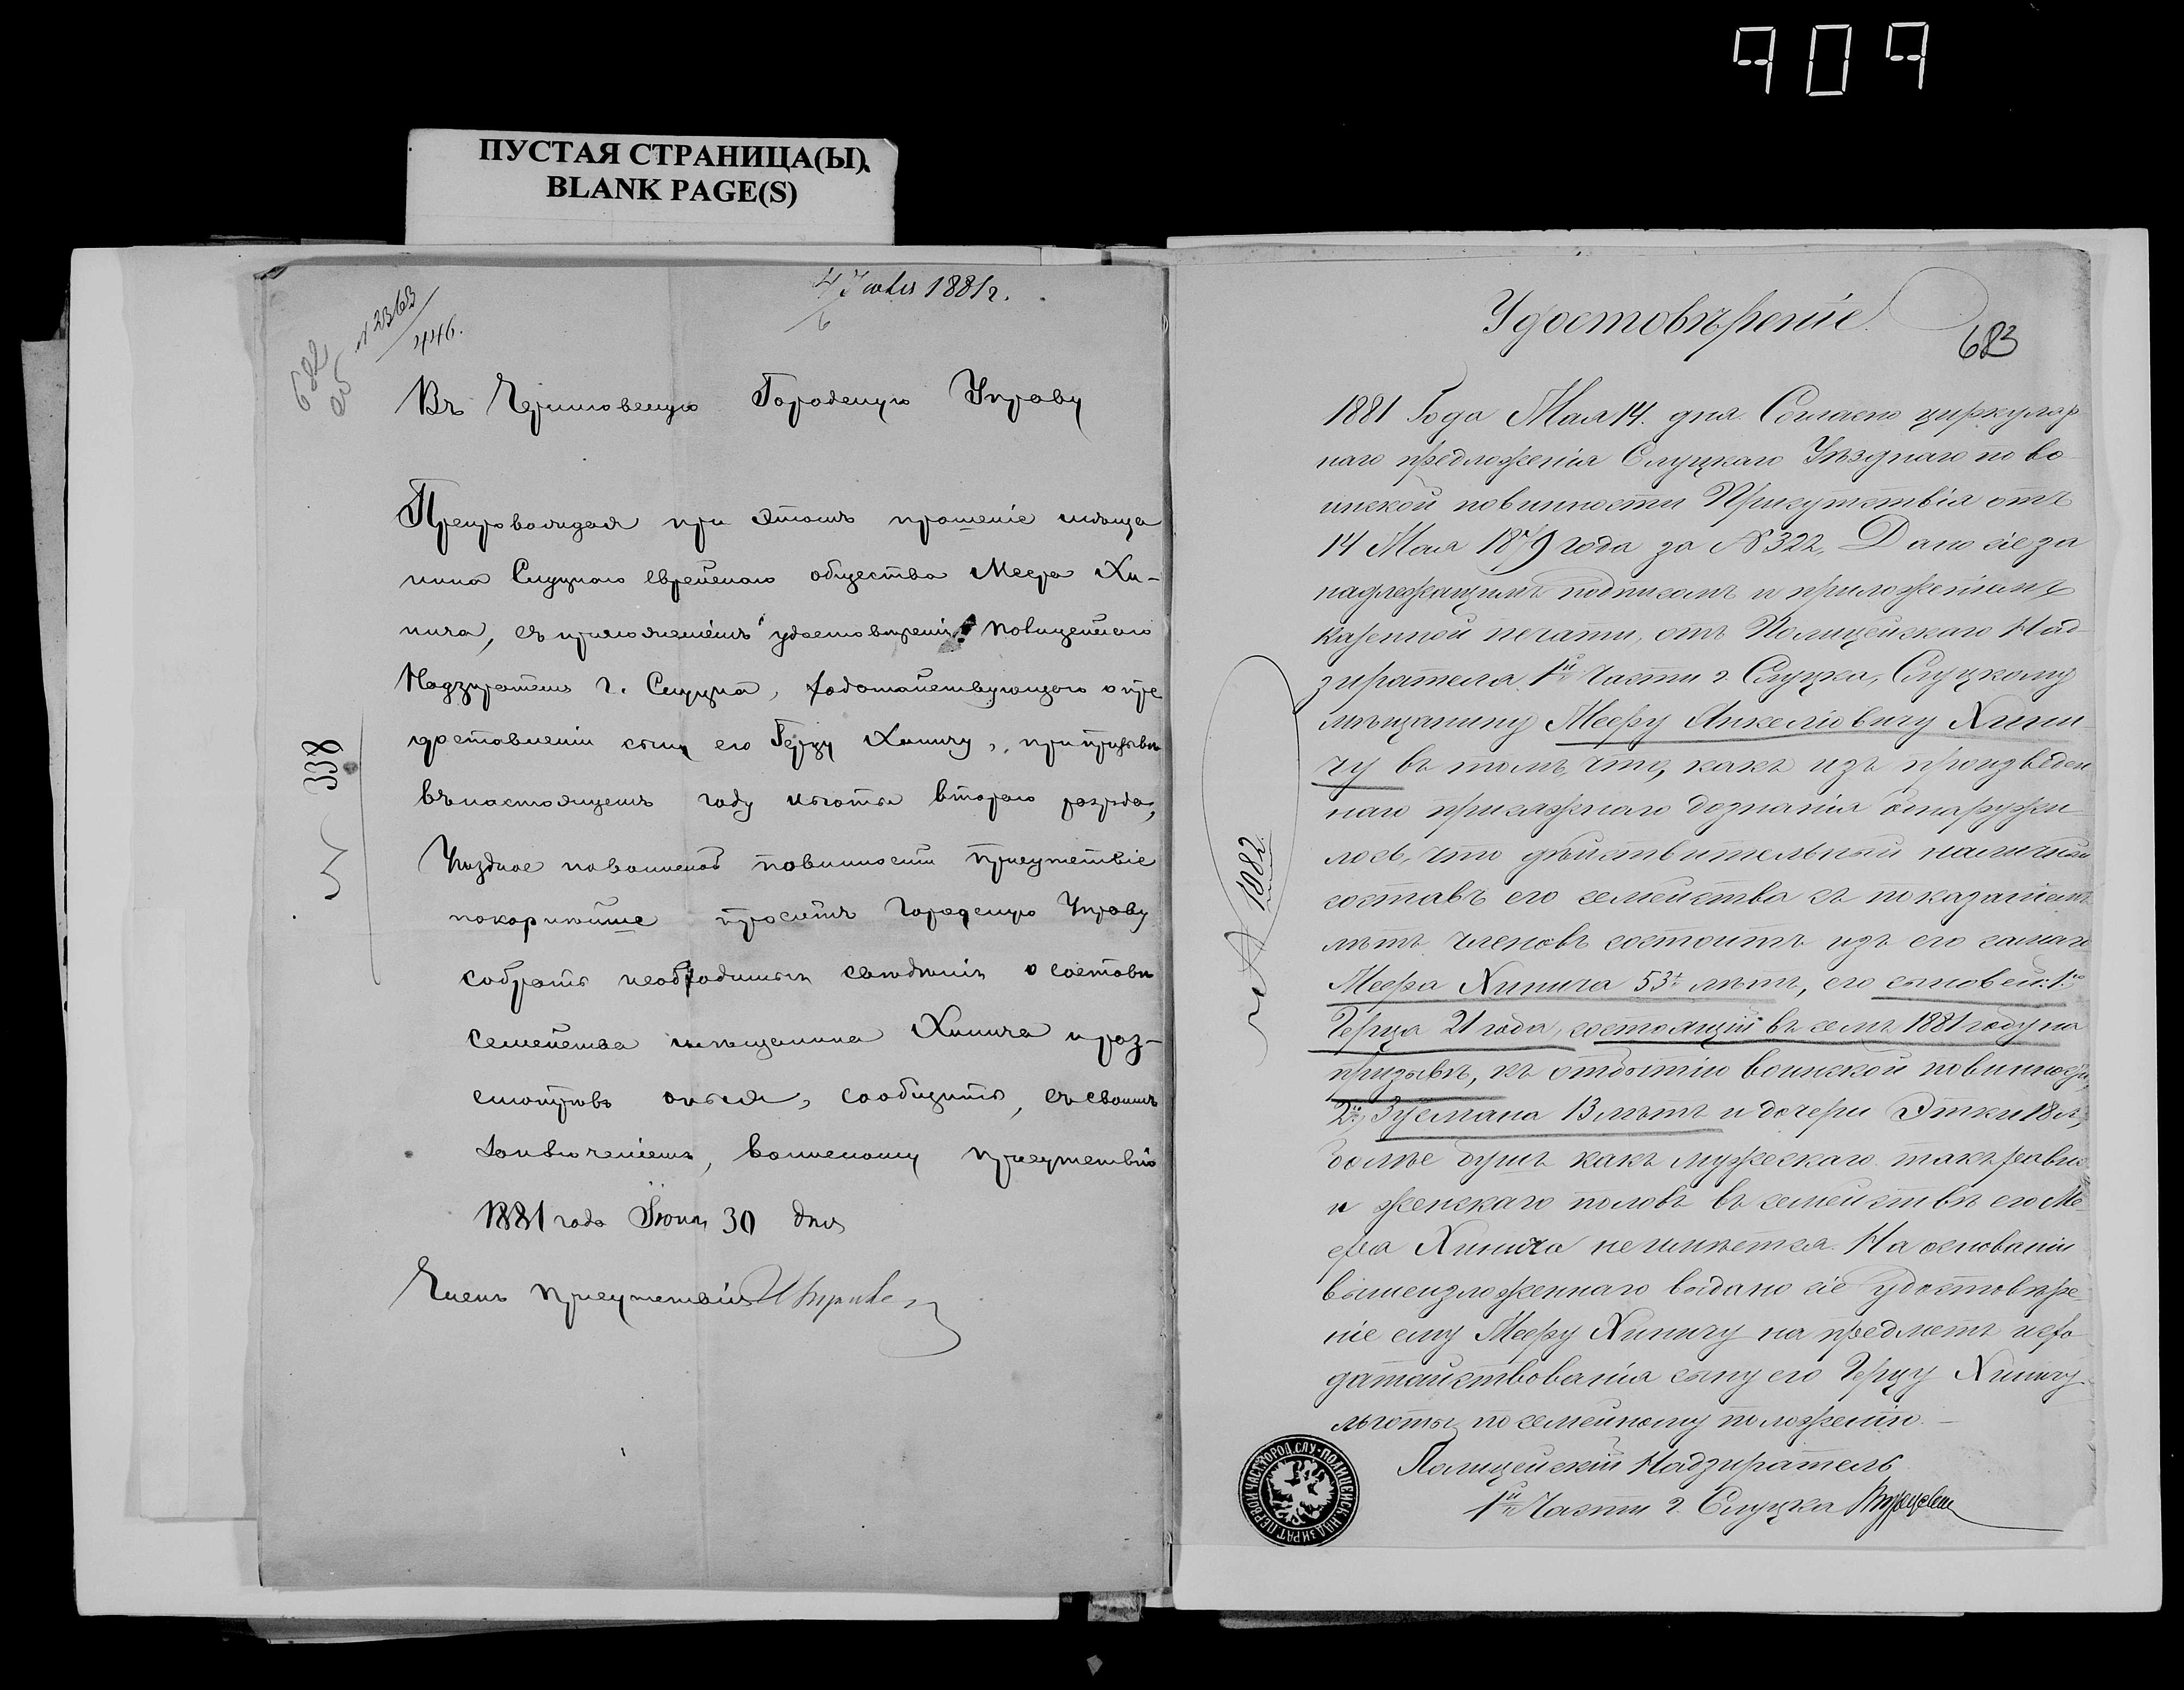 909
ПУСТАЯ СТРАНИЦА(Ы).
BLANK PAGE(S)
4 Іюля 1881 г.
6
№ 2363
446.
682
об
Въ Черниговскую Городскую Управу
Препровождая при этомъ прошеніе мѣща
нина Слуцкаго еврейскаго общества Меера Хи-
нича, съ приложеніемъ удостовѣренія Полицейскаго
Надзирателя г. Слуцка, ходатайствующаго о пре
доставленіи сыну его Герцу Хиничу, при призывѣ
въ настоящемъ году льготы втораго разряда,
Уѣздное по воинской повинности Присутствіе
покорнѣйше проситъ Городскую Управу
собрать необходимыя свѣдѣнія о составѣ
семейства мѣщанина Хинича и раз-
смотрѣвъ оныя, сообщить, съ своимъ
заключеніемъ, воинскому присутствію
1881 года Іюня 30 дня
Членъ Присутствія
338
Удостовѣреніе.
683
1881 Года Мая 14. дня. Согласно циркуляр
наго предложенія Слуцкаго Уѣзднаго по во
инской повинности Присутствія отъ
14 Мая 1879 года за № 322, Дано сіе за
надлежащимъ подписомъ и приложеніемъ
казенной печати, отъ Полицейскаго Над
зирателя 1й Части г. Слуцка, Слуцкому
мѣщанину Мееру Янкеліовичу Хини
чу въ томъ, что, какъ изъ произведен
наго присяжнаго дознанія обнаружи
лось, что дѣйствительный наличный
составъ его семейства съ показаніемъ
лѣтъ членовъ состоитъ изъ его самаго
Меера Хинича 53х лѣтъ, его сыновей: 1го
Герца 21 года, состоящій въ семъ 1881 году на
призывѣ, къ отбытію воинской повинности,
2го Зусмана 13 лѣтъ и дочери Этки 18 л.,
болѣе душъ какъ мужескаго такъ равно
и женскаго половъ въ семействѣ его Ме
ера Хинича не имѣется. На основаніи
вышеизложеннаго выдано сіе удостовѣре
ніе ему Мееру Хиничу на предметъ исхо
датайствованія сыну его Герцу Хиничу
льготы по семейному положенію. —
Полицейскій Надзиратель
1й Части г. Слуцка
№ 1082
ПОЛИЦЕЙСК. НАДЗИРАТ. ПЕРВОЙ ЧАСТ. ГОРОД. СЛУ.